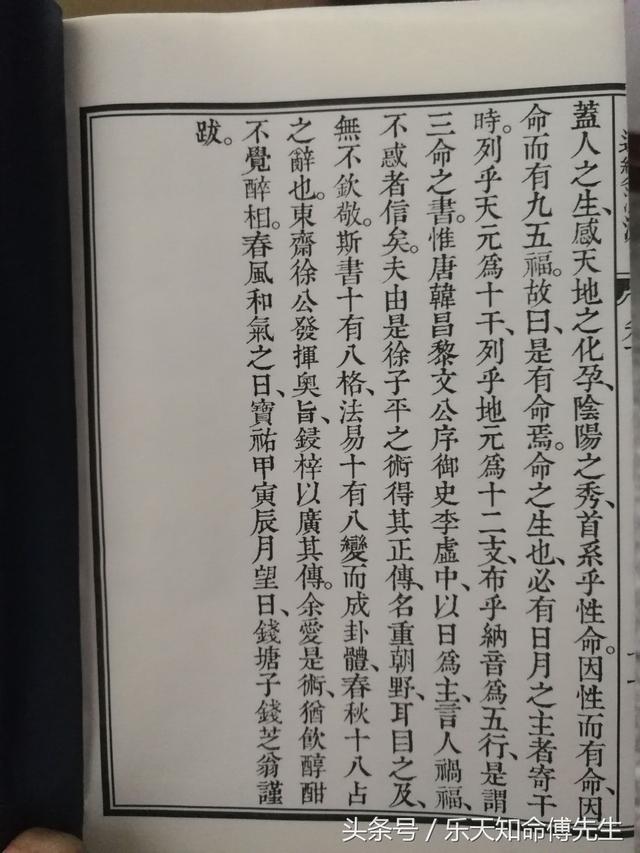 蓋人之生、感天地之化孕、陰陽之秀、首系乎性命。因性而有命、因
命而有九五福。故曰、是有命焉。命之生也、必有日月之主者寄干
時。列乎天元爲十干、列乎地元爲十二支、布乎納音爲五行、是謂
三命之書。惟唐韓昌黎文公序御史李虛中、以日爲主、言人禍福、
不惑者信矣。夫由是徐子平之術得其正傳、名重朝野、耳目之及、
無不欽敬。斯書十有八格、法易十有八變而成卦體、春秋十八占
之辭也。東齋徐公發揮奥旨、鋟梓以廣其傳。余愛是術、猶飲醇酣
不覺醉相。春風和氣之日、寶祐甲寅辰月望日、錢塘子錢芝翁謹
跋。
头条号 / 乐天知命傅先生